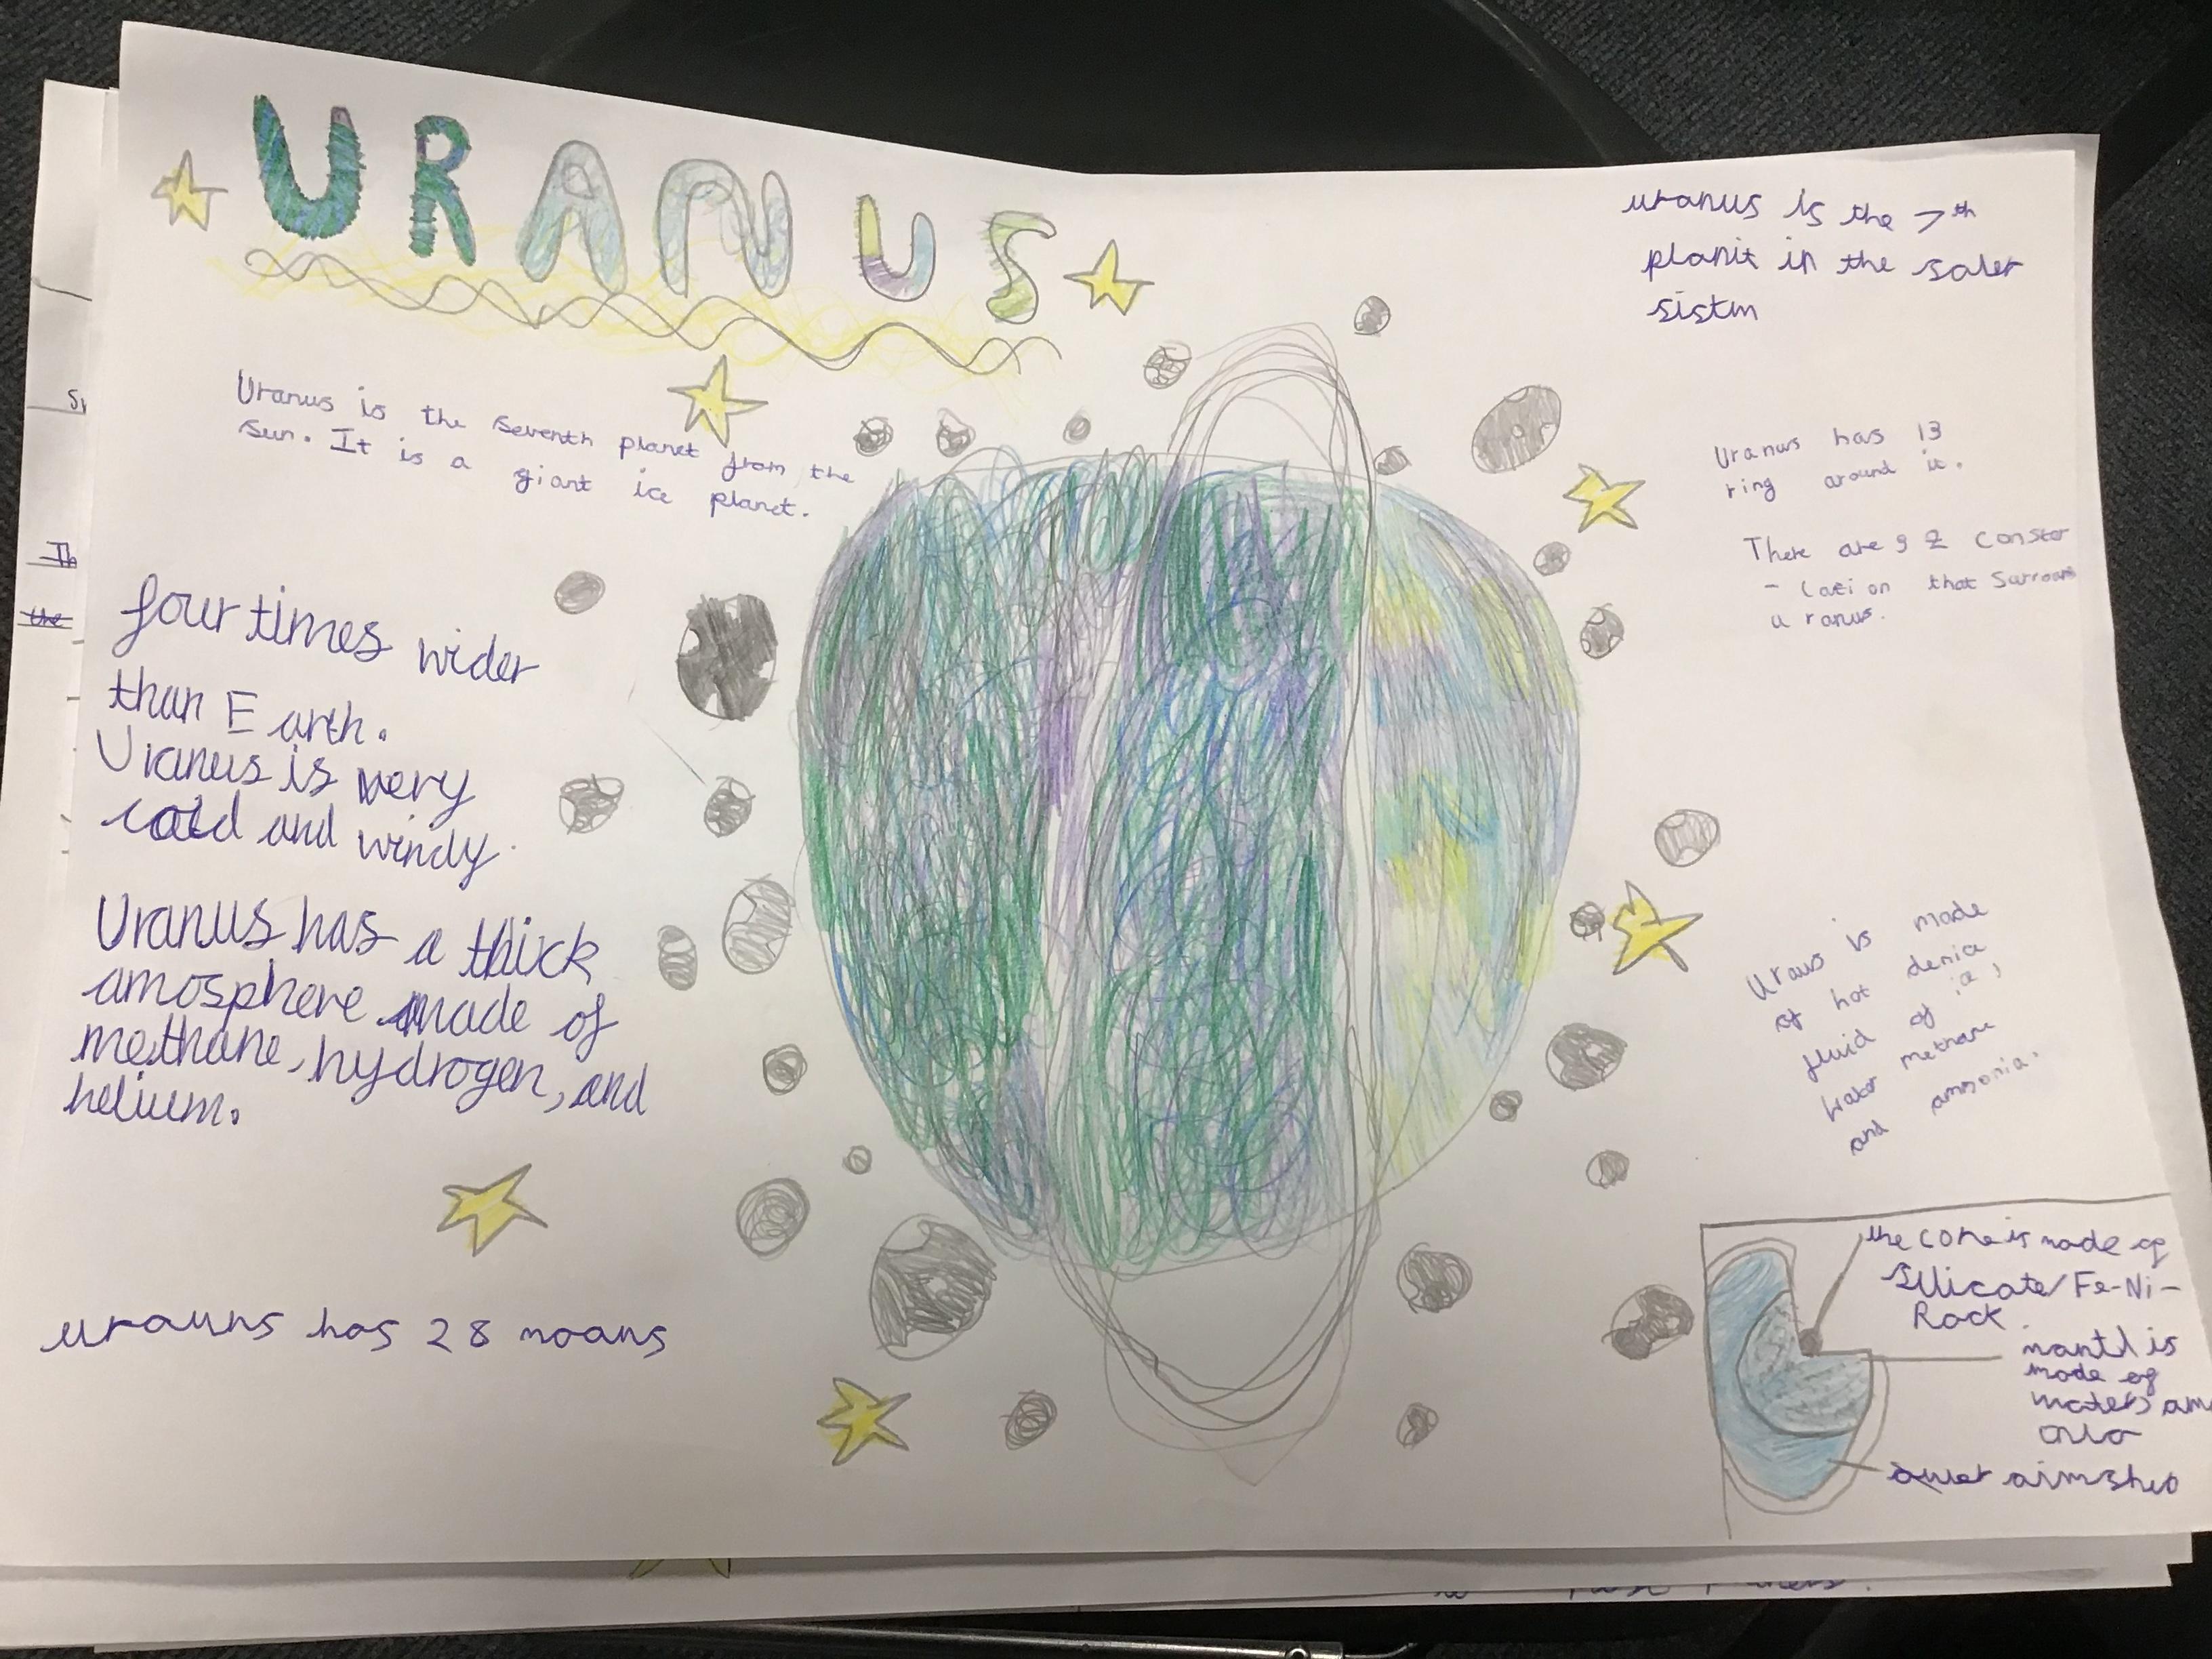 URANUS
Uranus is the seventh planet from the
sun. It is a giant ice planet.
four times wider
than Earth.
Uranus is very
cold and windy.
Uranus has a thick
amosphere made of
methane, hydrogen, and
helium.
urauns has 28 moans
uranus is the 7th
planit in the saler
sistm
Uranus has 13
ring around it.
There are 9 2 conster
- lati on that
uranus.
Uraus is made
of hot denia
fluid of
water methane
and ammonia.
the core is made of
Silicate/Fe-Ni-
Rock.
mantl is
made of